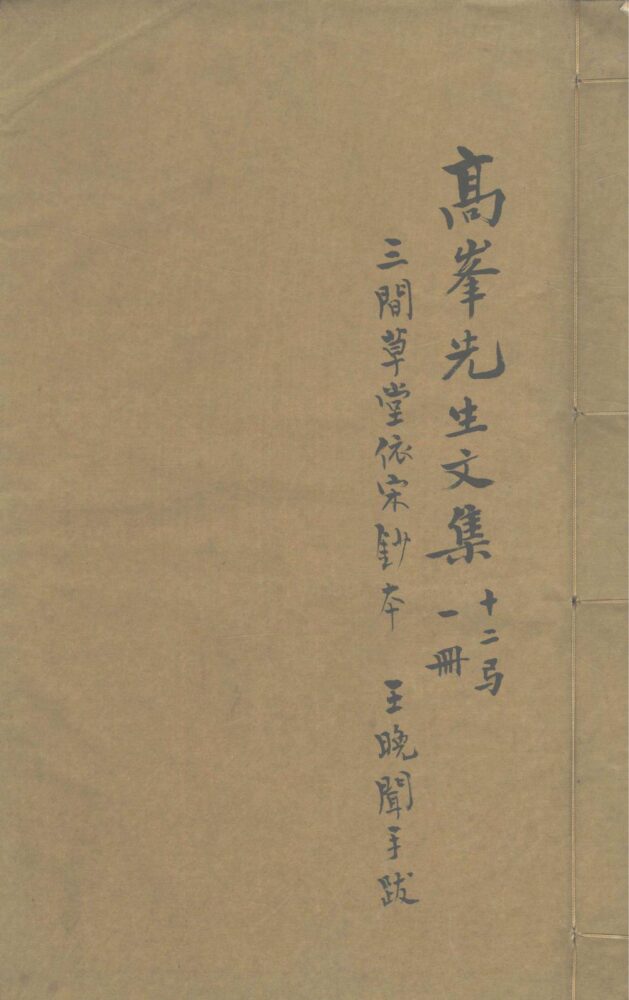 高峯先生文集
十二弓
一冊
三間草堂依宋鈔本　王晚聞手跋